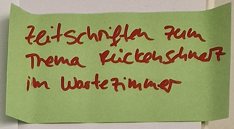 Zeitschriften zum
Thema Rückenschmerz
im Wartezimmer